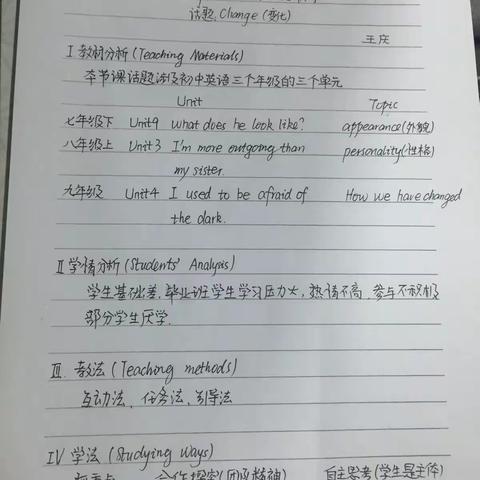 话题: Change (变化)
王庆
I 教材分析 (Teaching Materials)
本节课话题涉及初中英语三个年级的三个单元
Unit Topic
七年级下 Unit9 What does he look like? appearance(外貌)
八年级上 Unit3 I'm more outgoing than my sister. personality(性格)
九年级 Unit4 I used to be afraid of the dark. How we have changed
II 学情分析 (Students' Analysis)
学生基础差, 毕业班学生学习压力大, 热情不高, 参与不积极
部分学生厌学.
III. 教法 (Teaching methods)
互动法、任务法、引导法
IV 学法 (Studying Ways)
合作探究(团队精神) 自主思考(学生是主体)